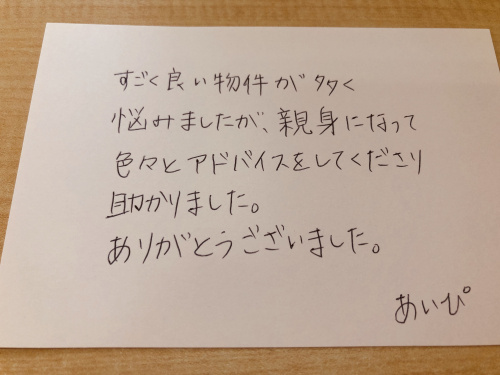 すごく良い物件が多く
悩みましたが、親身になって
色々とアドバイスをしてくださり
助かりました。
ありがとうございました。
あいぴ